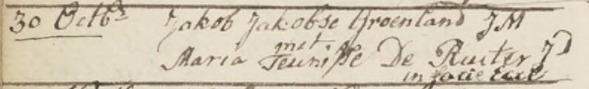 30 Octbr Jakob Jakobse Groenland JM
met
Maria Teunisse De Ruiter JD
in facie eccl